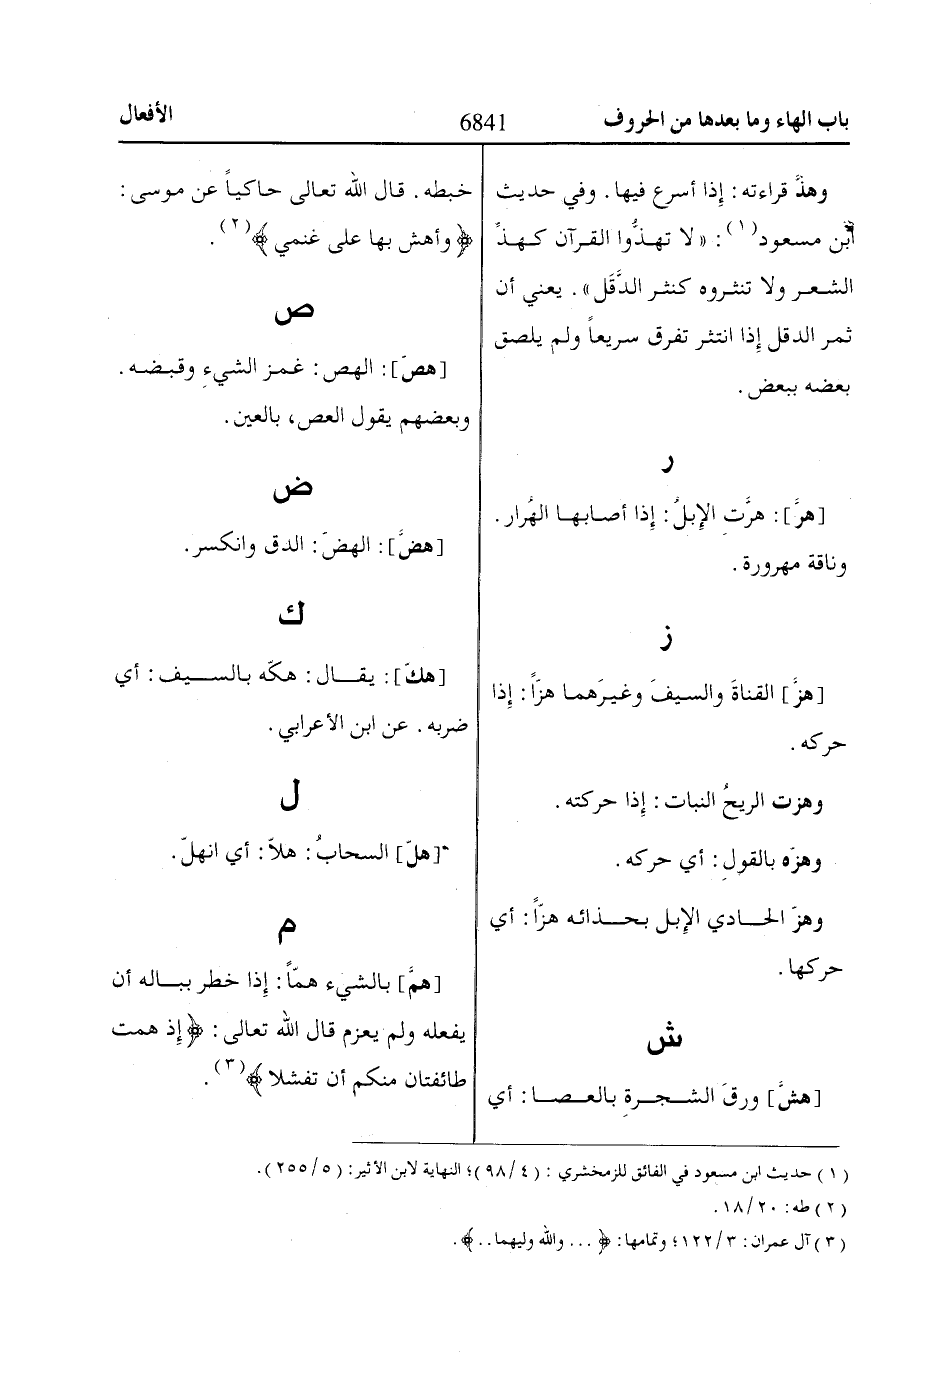 باب الهاء وما بعدها من الحروف
6841
الأفعال
وهذَّ قراءته: إذا أسرع فيها. وفي حديث
ابن مسعود(١): «لا تهذُّوا القرآن كهذِّ
الشعر ولا تنثروه كنثر الدَّقَل». يعني أن
ثمر الدقل إذا انتثر تفرق سريعاً ولم يلصق
بعضه ببعض.
ر
[هرَّ]: هرَّت الإبلُ: إذا أصابها الهُرار.
وناقة مهرورة.
ز
[هزَّ] القناةَ والسيفَ وغيرَهما هزَّاً: إذا
حركه.
وهزت الريحُ النبات: إذا حركته.
وهزّه بالقول: أي حركه.
وهزّ الحادي الإبل بحذائه هزّاً: أي
حركها.
ش
[هشَّ] ورقَ الشجرةِ بالعصا: أي
خبطه. قال الله تعالى حاكياً عن موسى:
﴿وأهش بها على غنمي﴾(٢).
ص
[هصّ]: الهص: غمز الشيءِ وقبضه.
وبعضهم يقول العص، بالعين.
ض
[هضَّ]: الهضّ: الدق وانكسر.
ك
[هكّ]: يقال: هكّه بالسيف: أي
ضربه. عن ابن الأعرابي.
ل
*[هلّ] السحابُ: هلاّ: أي انهلّ.
م
[همَّ] بالشيء همّاً: إذا خطر بباله أن
يفعله ولم يعزم قال الله تعالى: ﴿إذ همت
طائفتان منكم أن تفشلا﴾(٣).
(١) حديث ابن مسعود في الفائق للزمخشري: (٩٨/٤)؛ النهاية لابن الأثير: (٢٥٥/٥).
(٢) طه: ١٨/٢٠.
(٣) آل عمران: ١٢٢/٣؛ وتمامها: ﴿... والله وليهما..﴾.